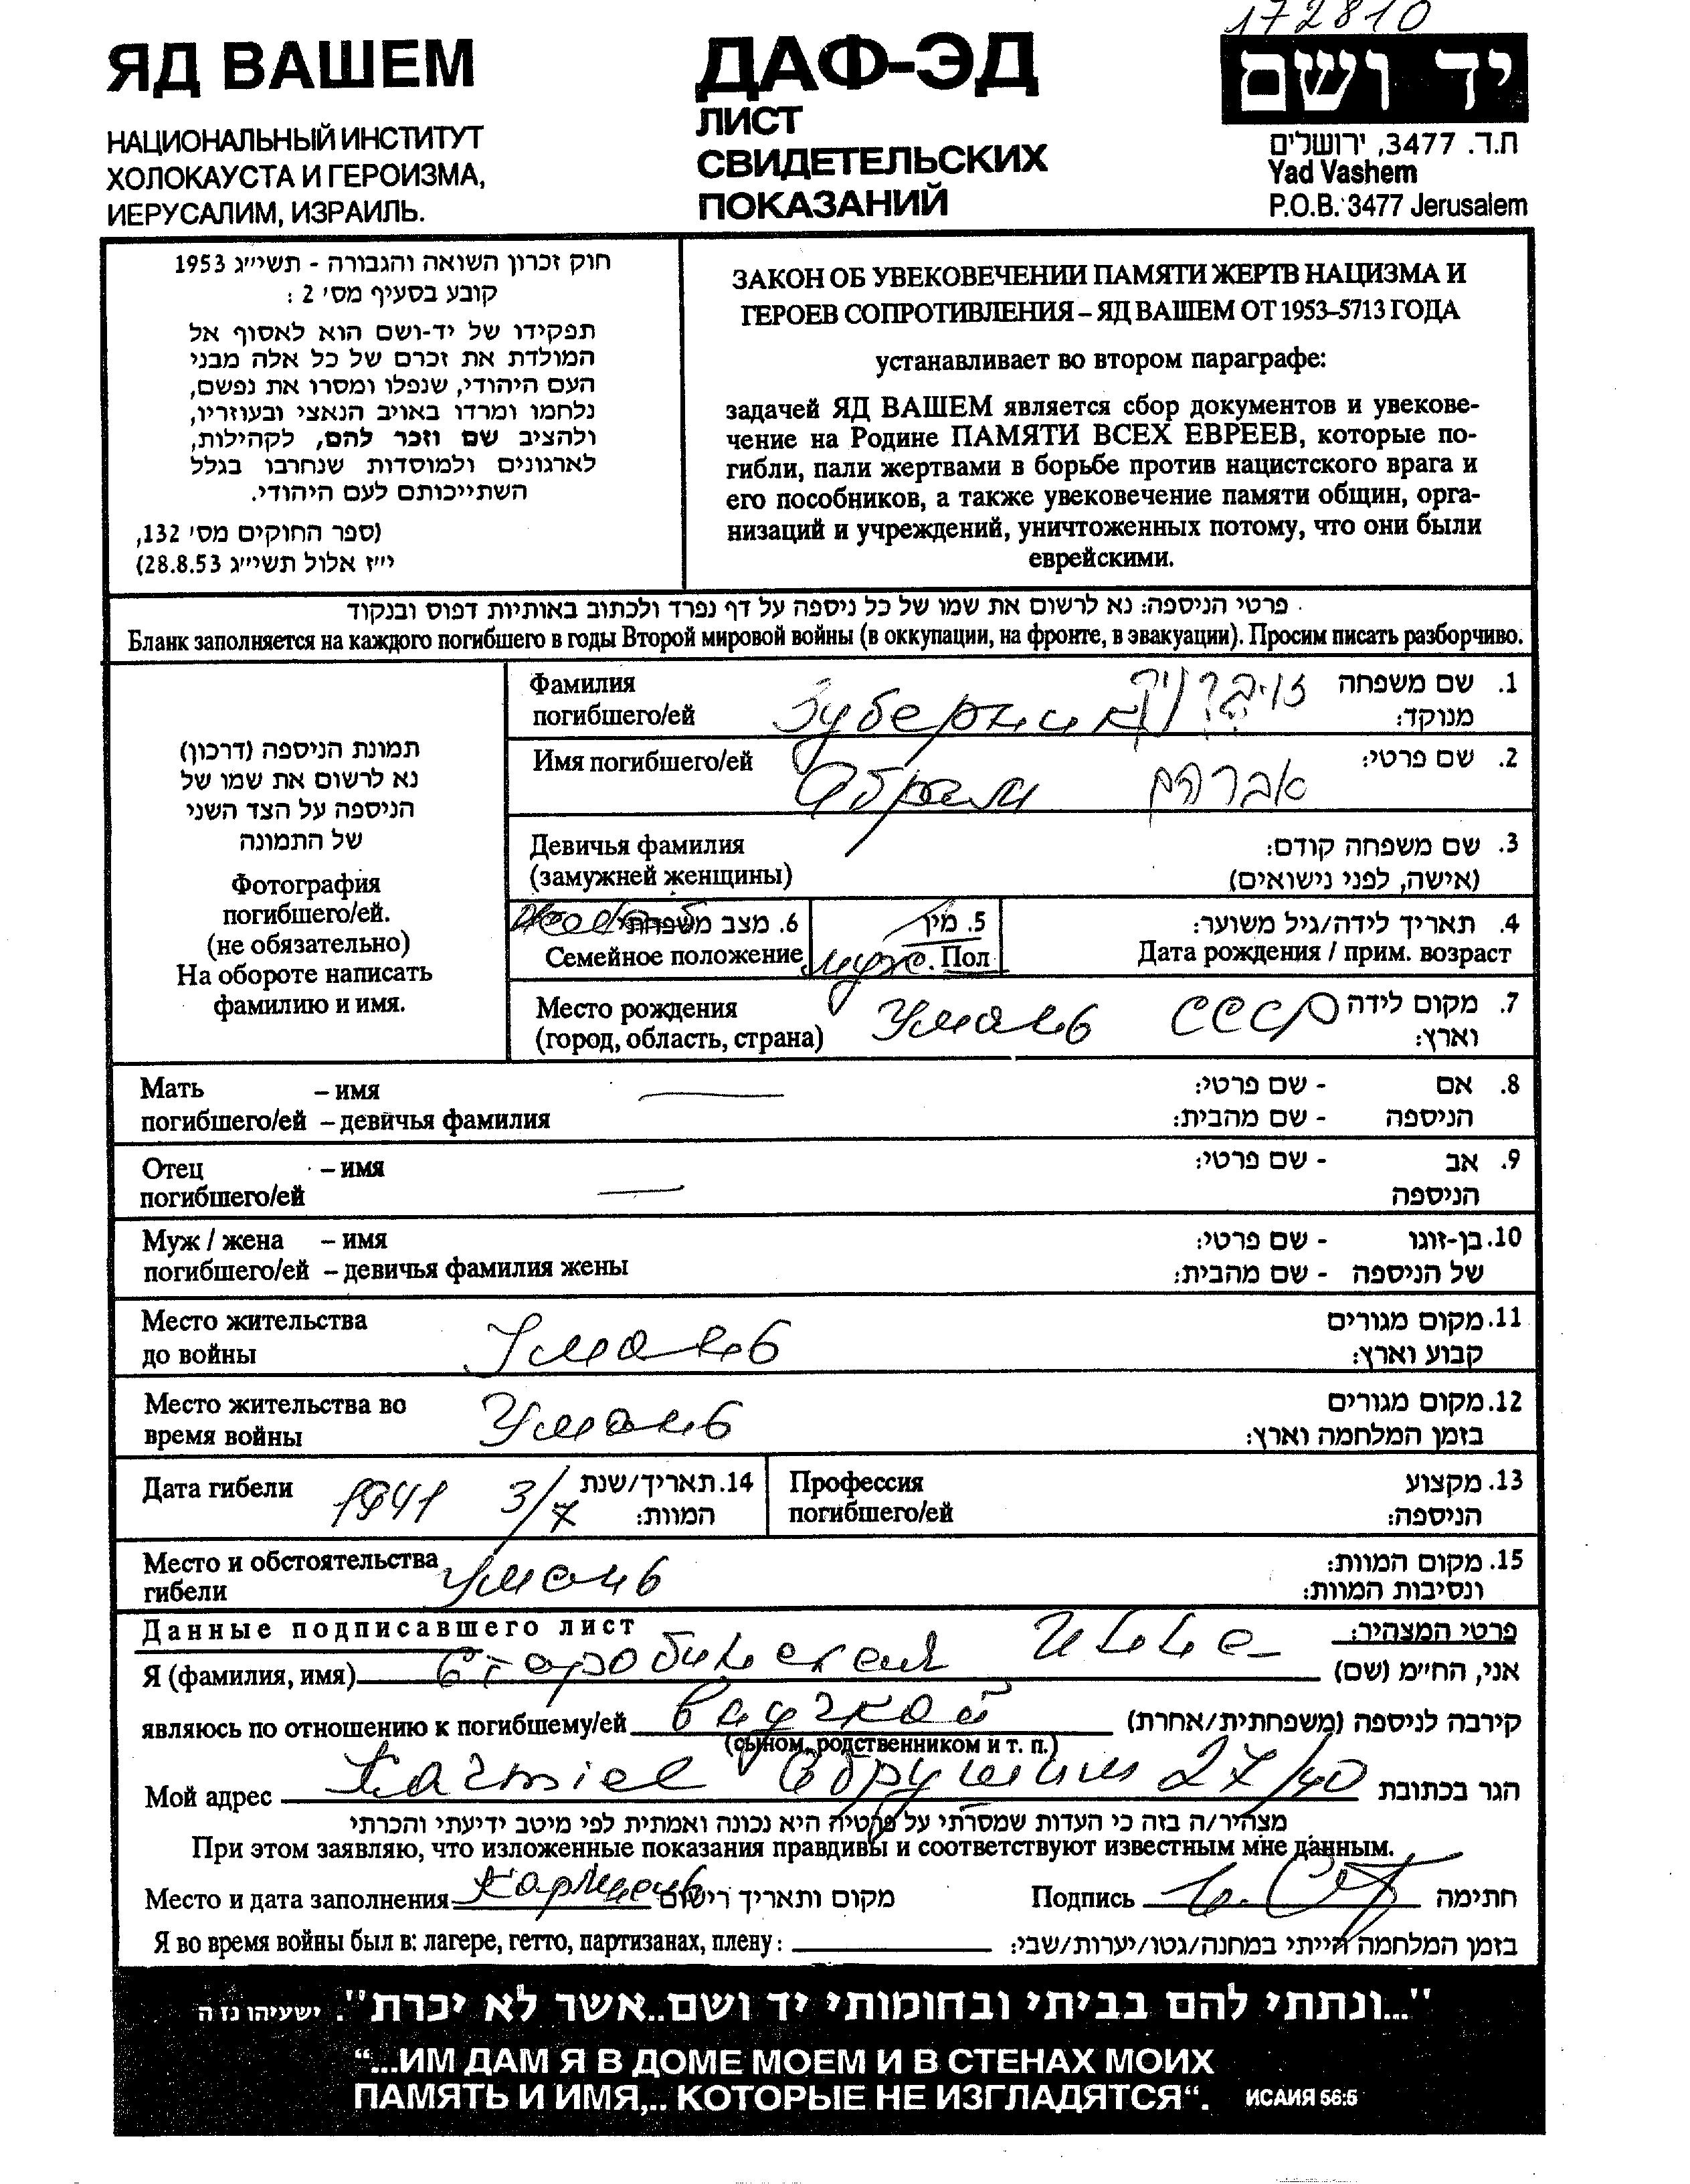 172810
ЯД ВАШЕМ
НАЦИОНАЛЬНЫЙ ИНСТИТУТ
ХОЛОКАУСТА И ГЕРОИЗМА,
ИЕРУСАЛИМ, ИЗРАИЛЬ.
ДАФ-ЭД
ЛИСТ
СВИДЕТЕЛЬСКИХ
ПОКАЗАНИЙ
יד ושם
ת.ד. 3477, ירושלים
Yad Vashem
P.O.B. 3477 Jerusalem
חוק זכרון השואה והגבורה - תשי״ג 1953
קובע בסעיף מס׳ 2 :
תפקידו של יד-ושם הוא לאסוף אל
המולדת את זכרם של כל אלה מבני
העם היהודי, שנפלו ומסרו את נפשם,
נלחמו ומרדו באויב הנאצי ובעוזריו,
ולהציב שם וזכר להם, לקהילות,
לארגונים ולמוסדות שנחרבו בגלל
השתייכותם לעם היהודי.
(ספר החוקים מס׳ 132,
י״ז אלול תשי״ג 28.8.53)
ЗАКОН ОБ УВЕКОВЕЧЕНИИ ПАМЯТИ ЖЕРТВ НАЦИЗМА И
ГЕРОЕВ СОПРОТИВЛЕНИЯ – ЯД ВАШЕМ ОТ 1953–5713 ГОДА
устанавливает во втором параграфе:
задачей ЯД ВАШЕМ является сбор документов и увекове-
чение на Родине ПАМЯТИ ВСЕХ ЕВРЕЕВ, которые по-
гибли, пали жертвами в борьбе против нацистского врага и
его пособников, а также увековечение памяти общин, орга-
низаций и учреждений, уничтоженных потому, что они были
еврейскими.
פרטי הניספה: נא לרשום את שמו של כל ניספה על דף נפרד ולכתוב באותיות דפוס ובנקוד
Бланк заполняется на каждого погибшего в годы Второй мировой войны (в оккупации, на фронте, в эвакуации). Просим писать разборчиво.
תמונת הניספה (דרכון)
נא לרשום את שמו של
הניספה על הצד השני
של התמונה
Фотография
погибшего/ей.
(не обязательно)
На обороте написать
фамилию и имя.
Фамилия
погибшего/ей Зуберник
1. שם משפחה
מנוקד:
Имя погибшего/ей Абрам אברהם 2. שם פרטי:
Девичья фамилия
(замужней женщины)
3. שם משפחה קודם:
(אישה, לפני נישואים)
6. מצב משפחתי
Семейное положение
5. מין
муж. Пол
4. תאריך לידה/גיל משוער:
Дата рождения / прим. возраст
Место рождения
(город, область, страна) Умань СССР
7. מקום לידה
וארץ:
Мать – имя
погибшего/ей – девичья фамилия
8. אם - שם פרטי:
הניספה - שם מהבית:
Отец – имя
погибшего/ей
9. אב - שם פרטי:
הניספה
Муж / жена – имя
погибшего/ей – девичья фамилия жены
10. בן-זוגו - שם פרטי:
של הניספה - שם מהבית:
Место жительства
до войны Умань
11. מקום מגורים
קבוע וארץ:
Место жительства во
время войны Умань
12. מקום מגורים
בזמן המלחמה וארץ:
Дата гибели 1941 3/7
14. תאריך/שנת
המוות:
Профессия
погибшего/ей
13. מקצוע
הניספה:
Место и обстоятельства
гибели Умань
15. מקום המוות:
ונסיבות המוות:
Данные подписавшего лист פרטי המצהיר:
Я (фамилия, имя) Старобинская Инна אני, החי״מ (שם)
являюсь по отношению к погибшему/ей внучкой קירבה לניספה (משפחתית/אחרת)
(сыном, родственником и т. п.)
Мой адрес Karmiel 27/40 הגר בכתובת
מצהיר/ה בזה כי העדות שמסרתי על פרטיה היא נכונה ואמתית לפי מיטב ידיעתי והכרתי
При этом заявляю, что изложенные показания правдивы и соответствуют известным мне данным.
Место и дата заполнения Кармиель מקום ותאריך רישום Подпись חתימה
Я во время войны был в: лагере, гетто, партизанах, плену : בזמן המלחמה הייתי במחנה/גטו/יערות/שבי:
"...ונתתי להם בביתי ובחומותי יד ושם..אשר לא יכרת". ישעיהו נז ה
“...ИМ ДАМ Я В ДОМЕ МОЕМ И В СТЕНАХ МОИХ
ПАМЯТЬ И ИМЯ,.. КОТОРЫЕ НЕ ИЗГЛАДЯТСЯ“. ИСАИЯ 56:5